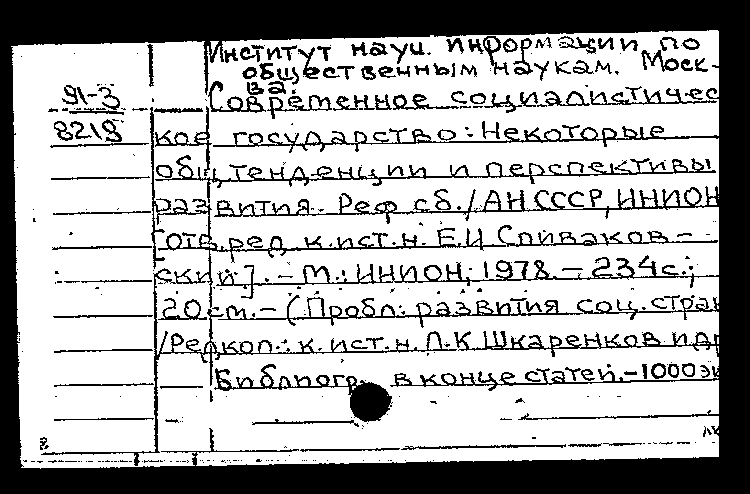 Институт науч. информации по
общественным наукам. Моск-
ва.
91-3
Современное социалистичес
8218
кое государство: Некоторые
общ. тенденции и перспективы
развития. Реф. сб. / АН СССР, ИНИОН
[отв. ред. к. ист. н. Е.И. Спиваков-
ский]. - М.: ИНИОН, 1978. - 234 с.;
20 см. - (Пробл. развития соц. стран
/ Редкол.: к. ист. н. Л.К. Шкаренков и др
Библиогр. в конце статей. - 1000 эк
в